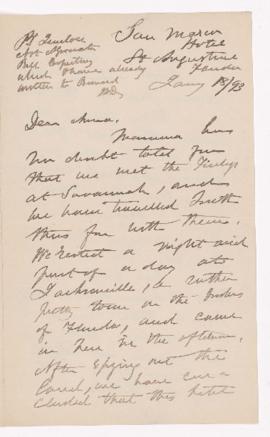 PS Enclose
San Marco
Hotel
St Augustine
Florida
Jany 18/93
which I have already
written to
Dear Anna.
Mamma has
no doubt told you
that we met the
at Savannah, and
we have travelled South
thus far with them.
We rested a night and
part of a day at
Jacksonville, a rather
pretty town on the borders
of Florida, and came
in here in the afternoon.
After spying out the
Land, we have con-
cluded that this hotel